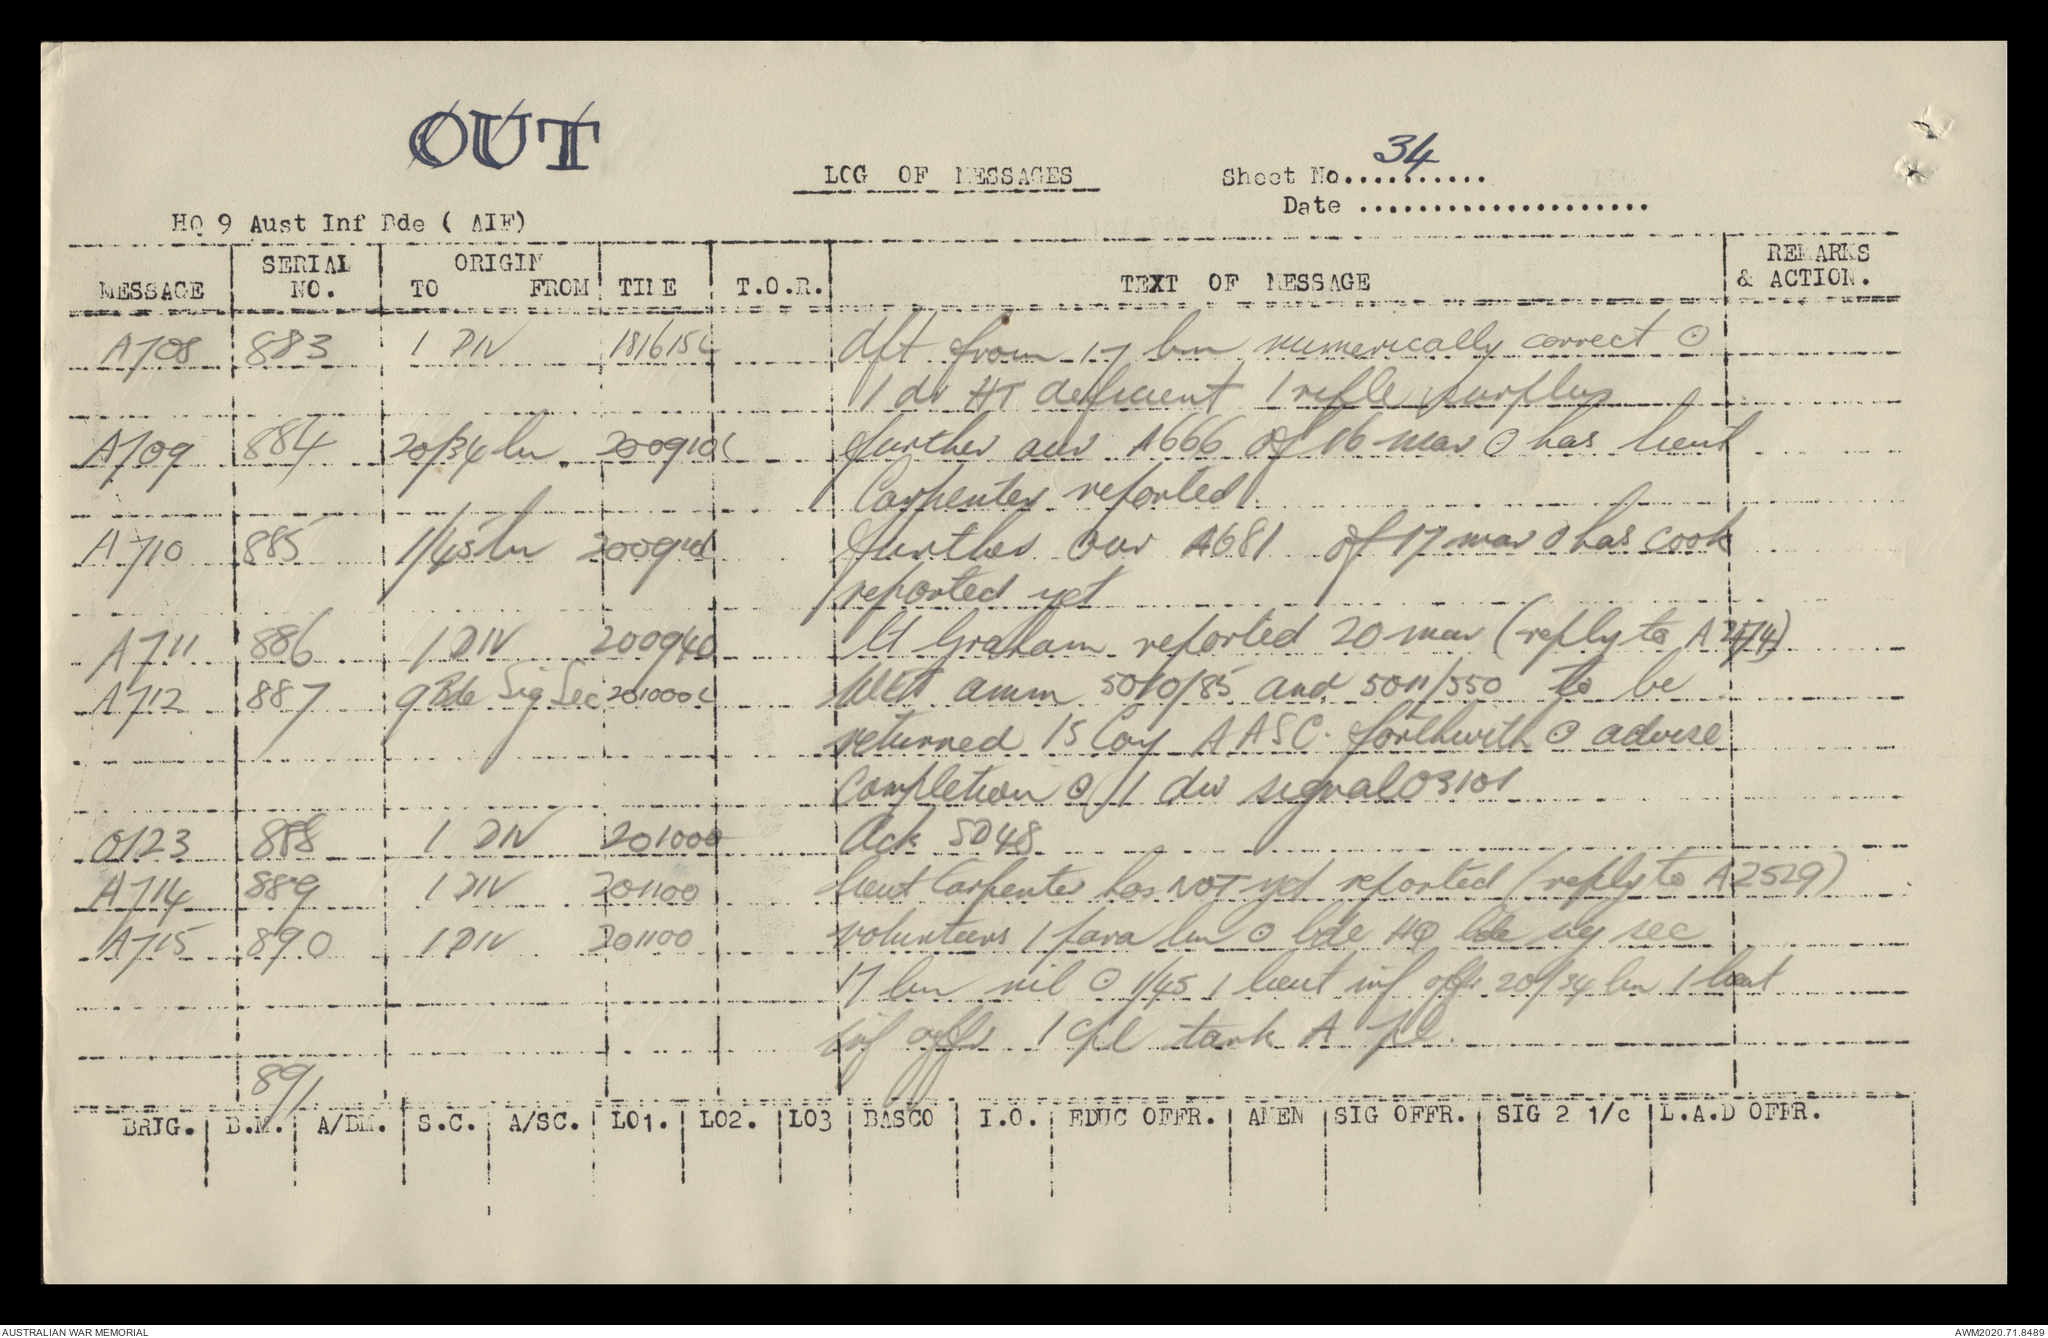 OUT
LOG OF MESSAGES
Sheet No..........34
Date .....................
HQ 9 Aust Inf Bde ( AIF)
MESSAGE SERIAL NO. ORIGIN TO FROM TIME T.O.R. TEXT OF MESSAGE REMARKS & ACTION.
A708 883 1 DIV 181615L dft from 17 bn numerically correct ⊙
1 dvr HT deficient 1 rifle surplus
A709 884 20/34 bn 200910L further our A666 of 16 mar ⊙ has lieut
Carpenter reported
A710 885 1/45 bn further our A681 of 17 mar ⊙ has cook
reported yet
A711 886 1 DIV 200940 Lt Graham reported 20 mar (reply to
A712 887 9 Bde Sig Sec 201000L amm 5010/85 and 5011/550 to be
returned 15 Coy AASC. forthwith ⊙ advise
completion ⊙ 1 div signal 03101
O123 888 1 DIV 201000 Ack SD48
A714 889 1 DIV 201100 lieut Carpenter has NOT yet reported (reply to A2529)
A715 890 1 DIV 201100 volunteers 1 para bn ⊙ bde HQ bde sig sec
17 bn nil ⊙ 1/45 1 lieut inf offr 20/34 bn 1 lieut
inf offr 1 cpl tank A pl.
891
BRIG. B.M. A/BM. S.C. A/SC. LO1. LO2. LO3 BASCO I.O. EDUC OFFR. AMEN SIG OFFR. SIG 2 1/c L.A.D OFFR.
AUSTRALIAN WAR MEMORIAL AWM2020.71.8489